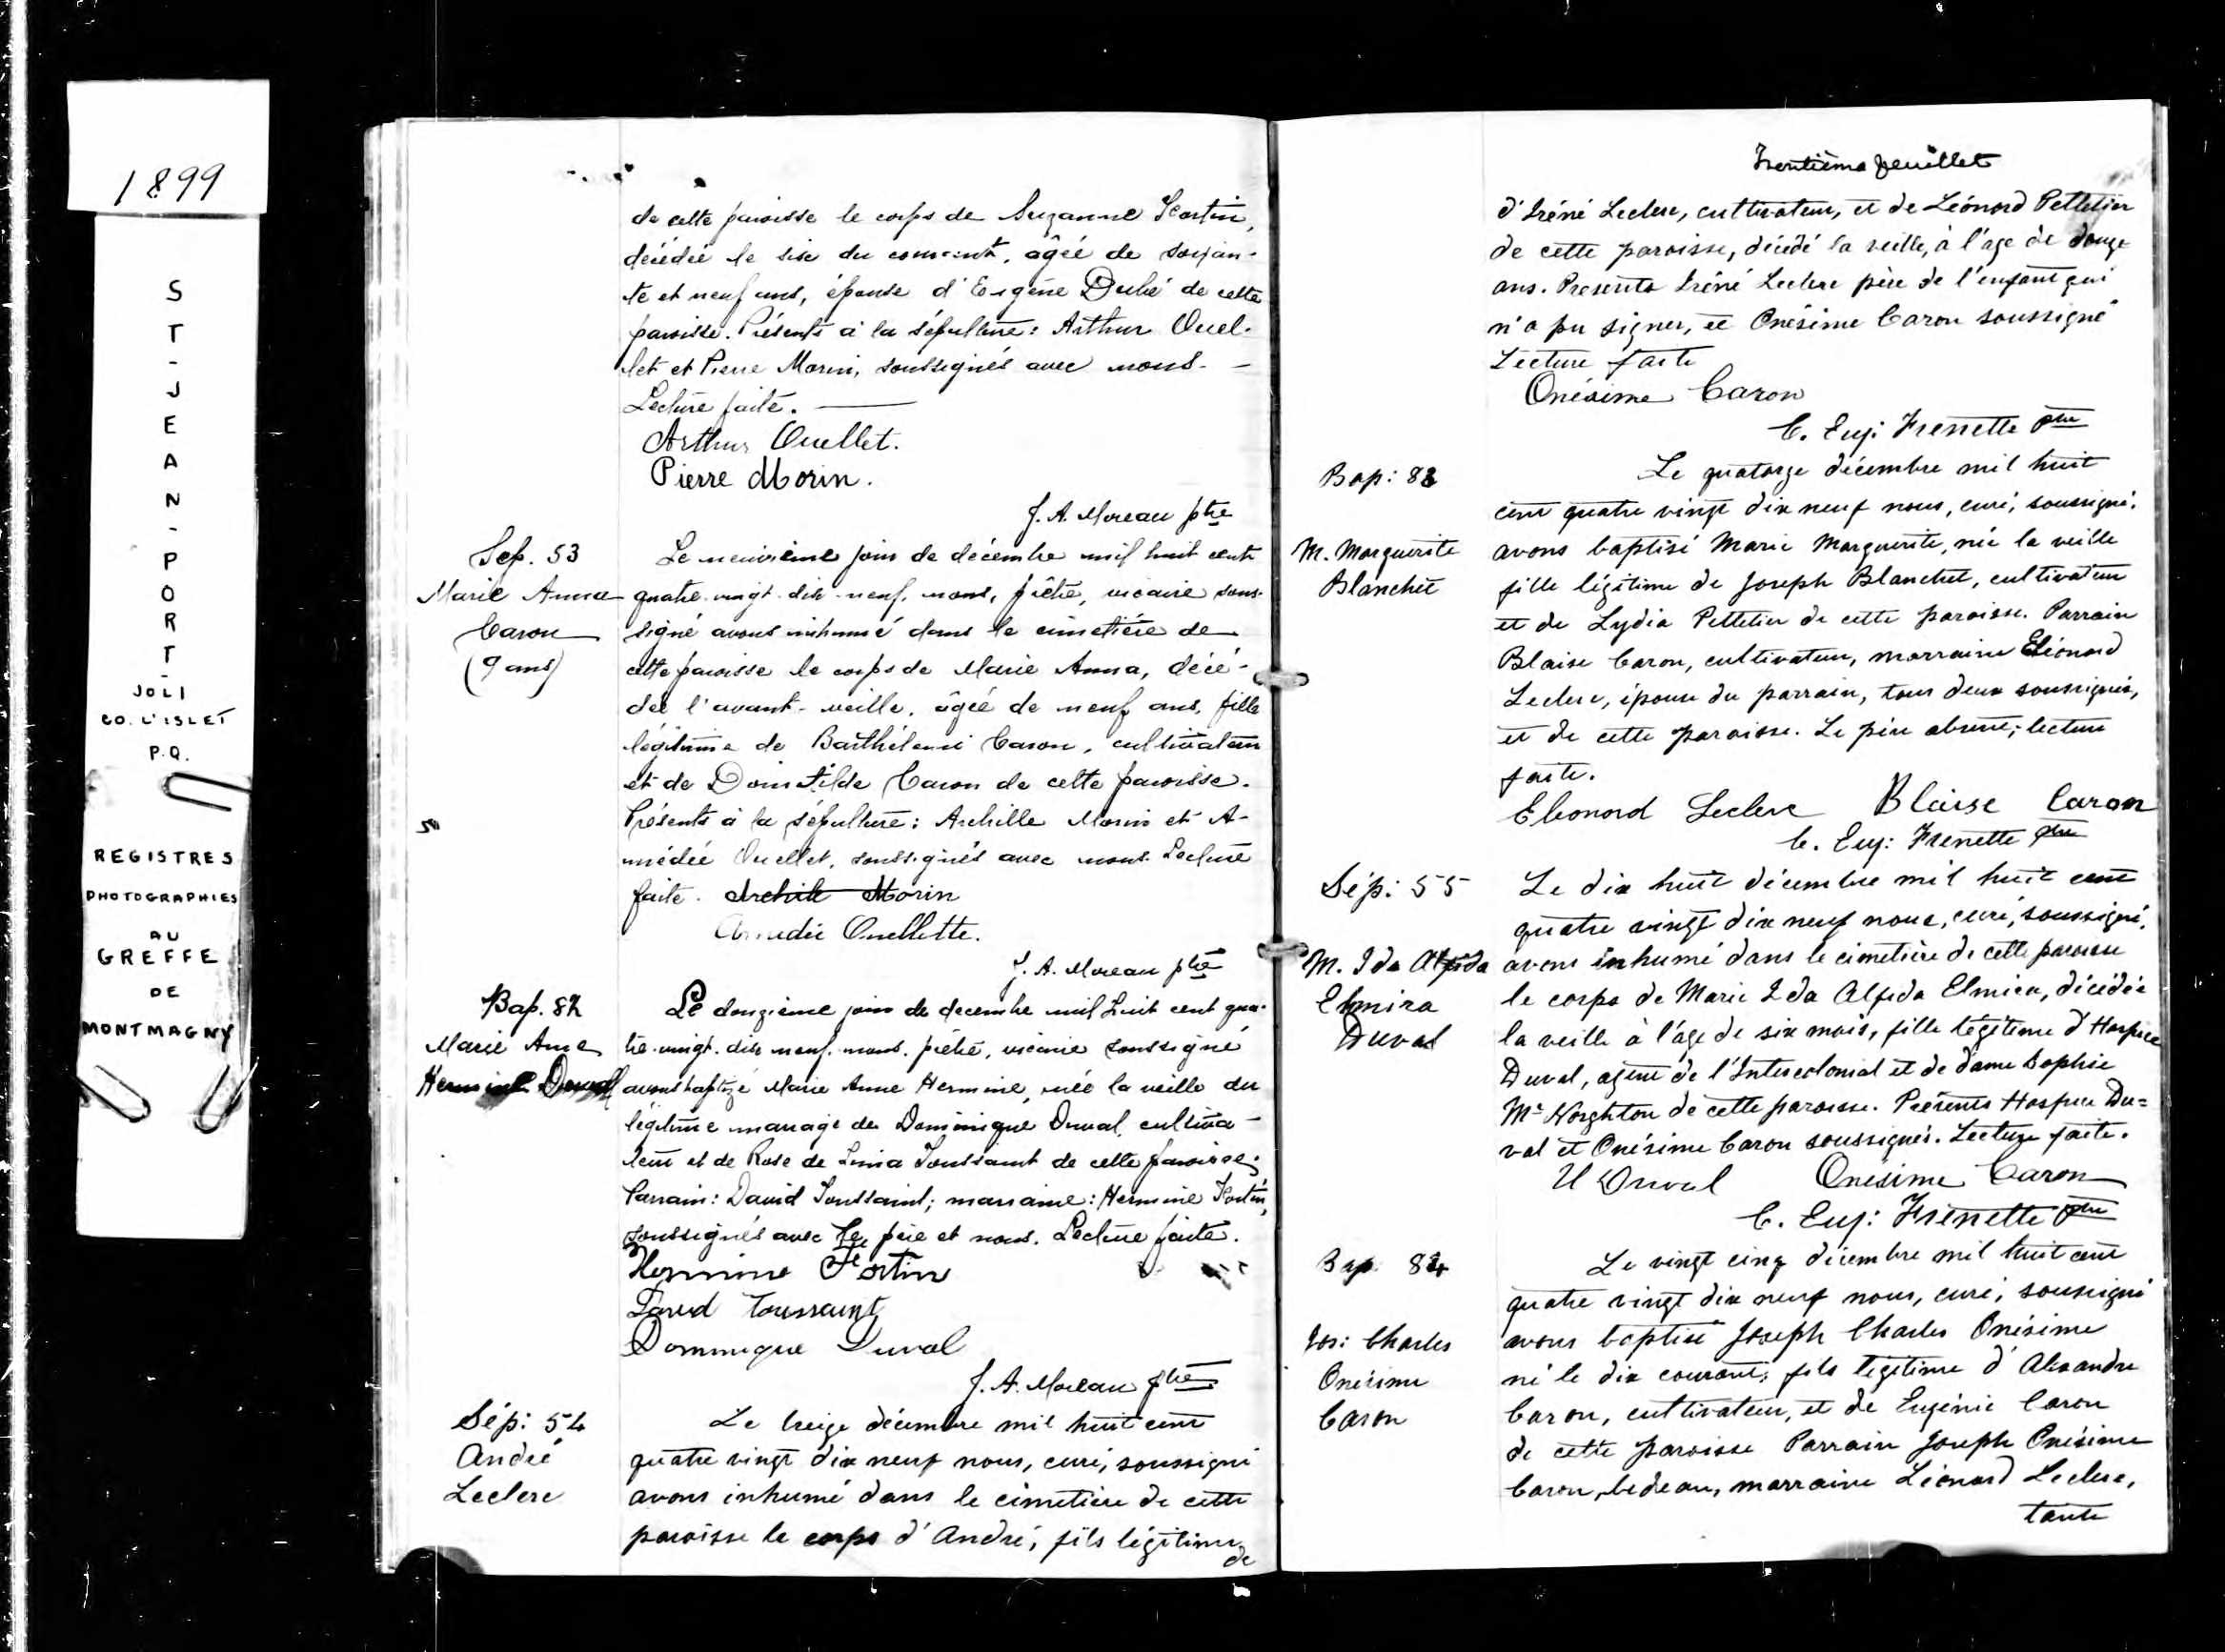 1899
ST-JEAN-PORT-
JOLI
CO. L'ISLET
P.Q.
REGISTRES
PHOTOGRAPHIES
AU
GREFFE
DE
MONTMAGNY
de cette paroisse le corps de Suzanne Fortin,
décédée le six du courant, âgée de soixan-
te et neuf ans, épouse d'Eugène Dubé de cette
paroisse. Présents à la sépulture: Arthur Ouel-
let et Pierre Morin, soussignés avec nous. -
Lecture faite.
Arthur Ouellet.
Pierre Morin.
J. A. Moreau ptre
Sep. 53
Marie Anna
Caron
(9 ans)
Le neuvième jour de décembre mil huit cent
quatre-vingt-dix-neuf, nous, prêtre, vicaire sous-
signé avons inhumé dans le cimetière de
cette paroisse le corps de Marie Anna, décé-
dée l'avant-veille, âgée de neuf ans, fille
légitime de Barthélemi Caron, cultivateur
et de Domitilde Caron de cette paroisse.
Présents à la sépulture: Achille Morin et A-
médée Ouellet, soussignés avec nous. Lecture
faite. Archile Morin
Amedée Ouellette.
J. A. Moreau ptre
Bap. 82
Marie Anne
Hermine Duval
Le douzième jour de decembre mil huit cent qua-
tre-vingt-dix neuf, nous, prêtre, vicaire soussigné
avons baptizé Marie Anne Hermine, née la veille du
légitime mariage de Dominique Duval, cultiva-
teur et de Rose de Lima Toussaint de cette paroisse;
Parrain: David Toussaint; marraine: Hermine Fortin,
soussignés avec le père et nous. Lecture faite.
Hermine Fortin
David Toussaint
Dominique Duval
J. A. Moreau ptre
Sép: 54
André
Leclerc
Le treize décembre mil huit cent
quatre vingt dix neuf nous, curé, soussigné
avons inhumé dans le cimetière de cette
paroisse le corps d'André, fils légitime
de
Trentième feuillet
d'Iréné Leclerc, cultivateur, et de Léonard Pelletier
de cette paroisse, décédé la veille, à l'age de douze
ans. Presents Iréné Leclerc père de l'enfant qui
n'a pu signer, et Onésime Caron soussigné
Lecture faite
Onésime Caron
C. Eug: Frenette ptre
Bap: 83
M. Marguerite
Blanchet
Le quatorze décembre mil huit
cent quatre vingt dix neuf nous, curé, soussigné,
avons baptisé Marie Marguerite, née la veille
fille légitime de Joseph Blanchet, cultivateur
et de Lydia Pelletier de cette paroisse. Parrain
Blaise Caron, cultivateur, marraine Eléonard
Leclerc, épouse du parrain, tous deux soussignés,
et de cette paroisse. Le père absent; lecture
faite.
Eleonord Leclerc Blaise Caron
C. Eug: Frenette ptre
Sép: 55
M. Ida Alfida
Elmira
Duval
Le dix huit décembre mil huit cent
quatre vingt dix neuf nous, curé, soussigné,
avons inhumé dans le cimetière de cette paroisse
le corps de Marie Ida Alfida Elmira, décédée
la veille à l'âge de six mois, fille légitime d'Hospice
Duval, agent de l'Intercolonial et de dame Sophie
Mc Noighton de cette paroisse. Présents Hospice Du=
val et Onésime Caron soussignés. Lecture faite.
H Duval Onésime Caron
C. Eug: Frenette ptre
Bap. 84
Jos: Charles
Onésime
Caron
Le vingt cinq décembre mil huit cent
quatre vingt dix neuf nous, curé, soussigné
avons baptisé Joseph Charles Onésime
né le dix courant, fils légitime d'Alexandre
Caron, cultivateur, et de Eugénie Caron
de cette paroisse Parrain Joseph Onésime
Caron, bedeau, marraine Léonard Leclerc,
tante